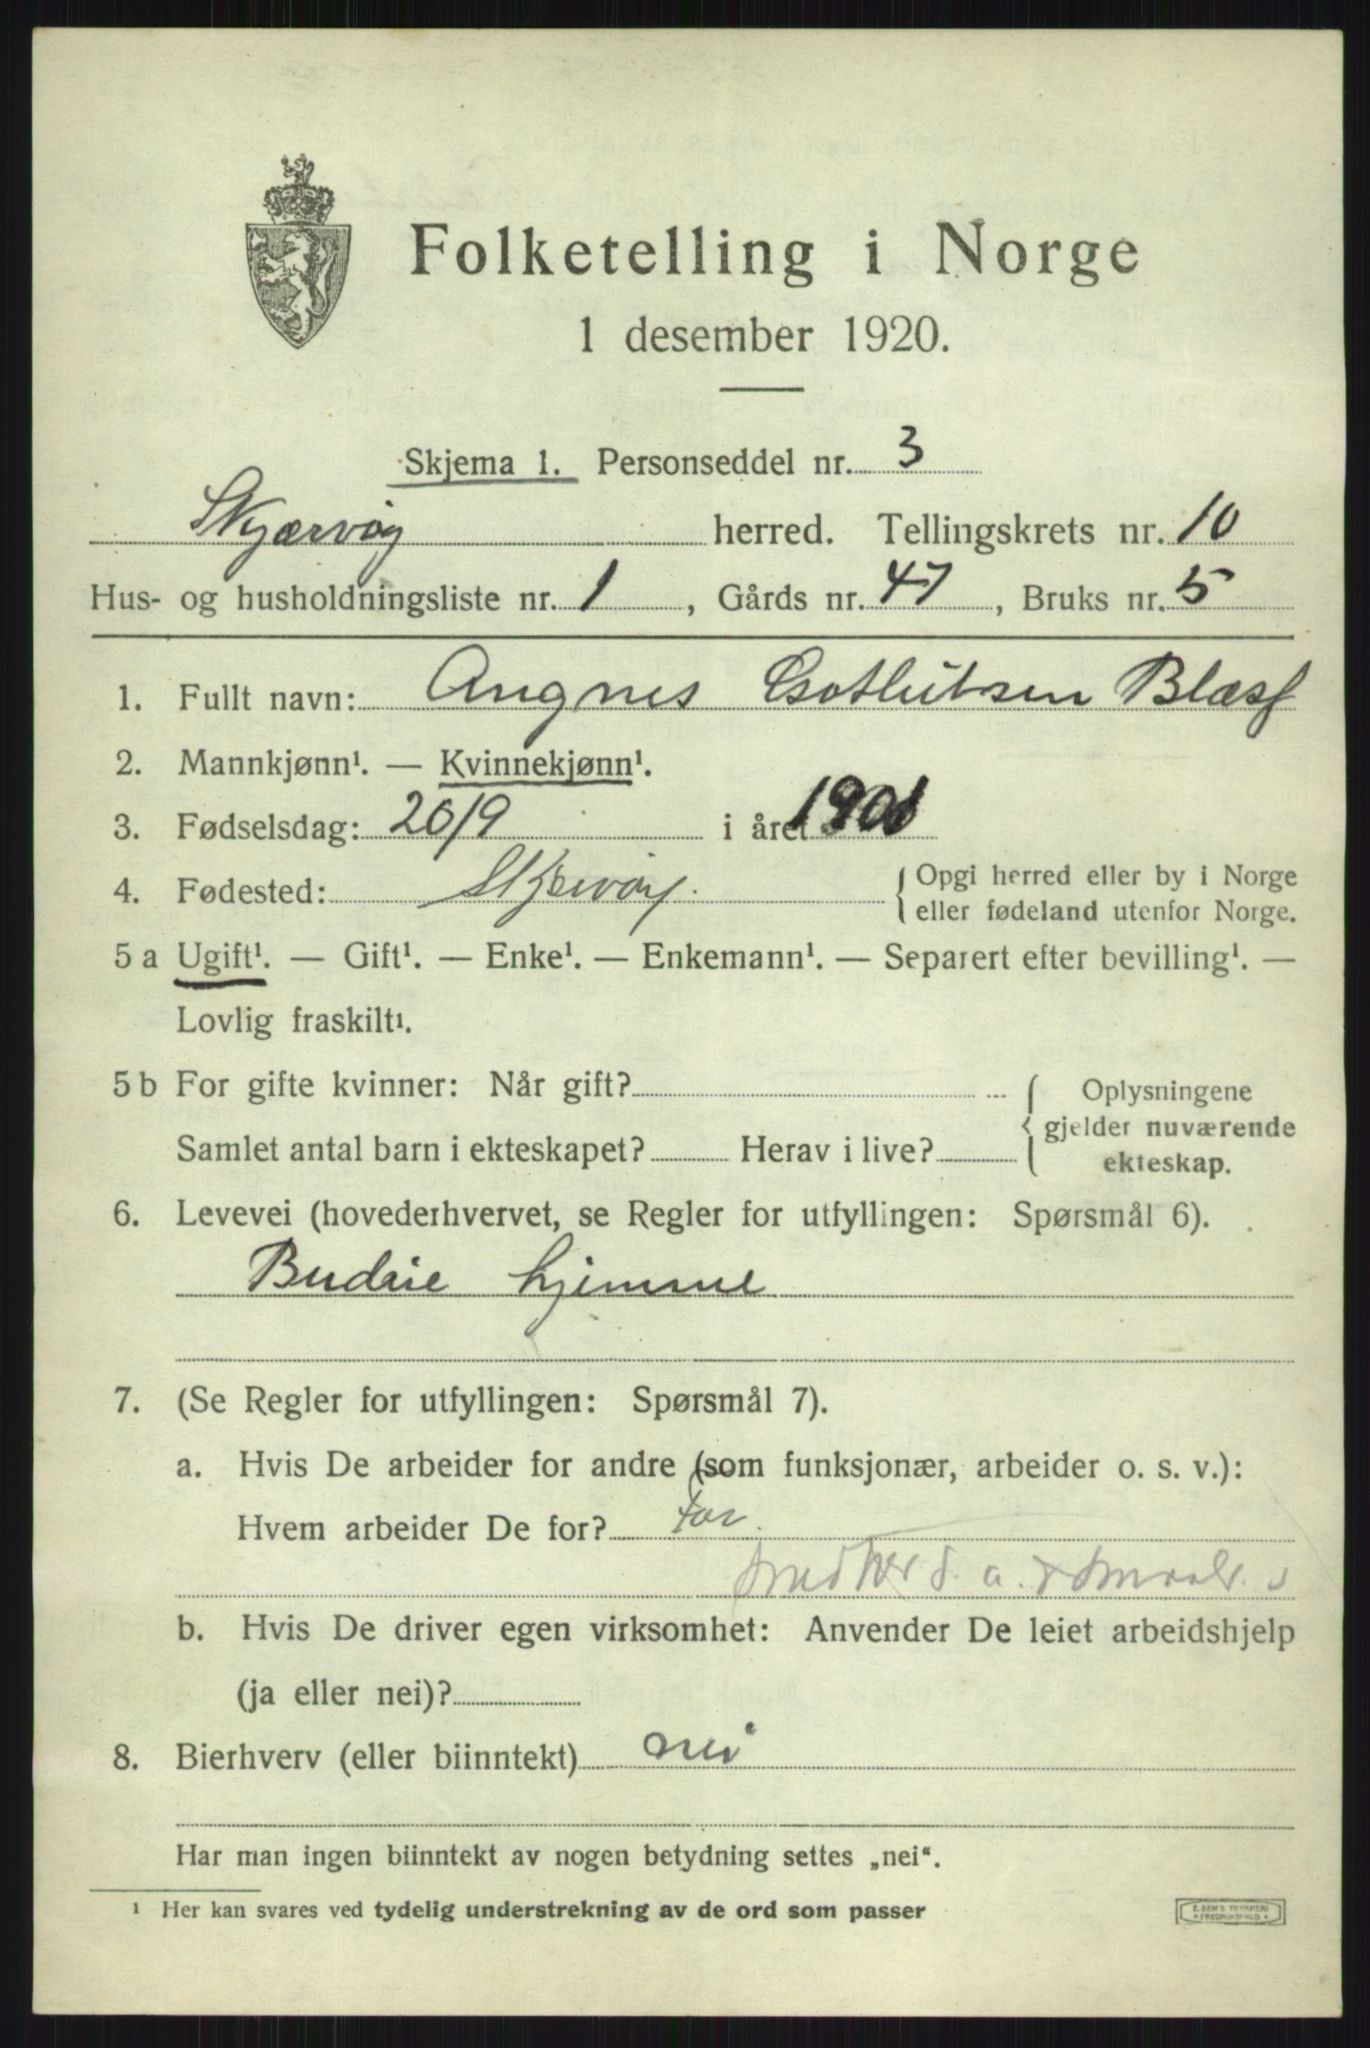 Folketelling i Norge
1 desember 1920.
Skjema 1. Personseddel nr. 3
Skjærvøy herred. Tellingskrets nr. 10
Hus- og husholdningsliste nr. 1, Gårds nr. 47, Bruks nr. 5
1. Fullt navn: Angnes Gotlitsen Blæsf
2. Mannkjønn¹. — Kvinnekjønn¹.
3. Fødselsdag: 20/9 i året
4. Fødested: Skjervøy. { Opgi herred eller by i Norge
eller fødeland utenfor Norge.
5 a Ugift¹. — Gift¹. — Enke¹. — Enkemann¹. — Separert efter bevilling¹. —
Lovlig fraskilt¹.
5 b For gifte kvinner: Når gift? { Oplysningene
gjelder nuværende
Samlet antal barn i ekteskapet? Herav i live?
ekteskap.
6. Levevei (hovederhvervet, se Regler for utfyllingen: Spørsmål 6).
Budeie hjemme
7. (Se Regler for utfyllingen: Spørsmål 7).
a. Hvis De arbeider for andre (som funksjonær, arbeider o. s. v.):
Hvem arbeider De for? Far
b. Hvis De driver egen virksomhet: Anvender De leiet arbeidshjelp
(ja eller nei)?
8. Bierhverv (eller biinntekt) nei
Har man ingen biinntekt av nogen betydning settes „nei“.
¹ Her kan svares ved tydelig understrekning av de ord som passer